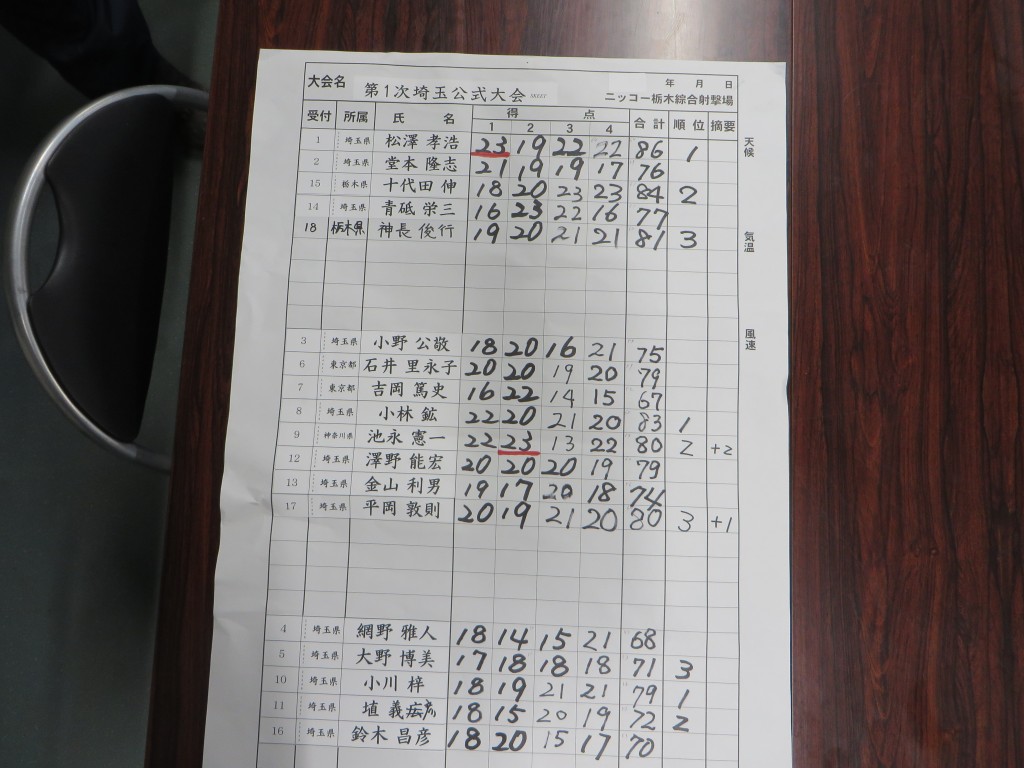 大会名 第1次埼玉公式大会 年 月 日
ニッコー栃木綜合射撃場
受付 所属 氏 名 得 点 合計 順位 摘要
1 2 3 4
1 埼玉県 松澤 孝浩 23 19 22 22 86 1
2 埼玉県 堂本 隆志 21 19 19 17 76
15 栃木県 十代田 伸 18 20 23 23 84 2
14 埼玉県 青砥 栄三 16 23 22 16 77
18 栃木県 神長 俊行 19 20 21 21 81 3
3 埼玉県 小野 公敬 18 20 16 21 75
6 東京都 石井 里永子 20 20 19 20 79
7 東京都 吉岡 篤史 16 22 14 15 67
8 埼玉県 小林 鉱 22 20 21 20 83 1
9 神奈川県 池永 憲一 22 23 13 22 80 2 +2
12 埼玉県 澤野 能宏 20 20 20 19 79
13 埼玉県 金山 利男 19 17 20 18 74
17 埼玉県 平岡 敦則 20 19 21 20 80 3 +1
4 埼玉県 網野 雅人 18 14 15 21 68
5 埼玉県 大野 博美 17 18 18 18 71 3
10 埼玉県 小川 梓 18 19 21 21 79 1
11 埼玉県 埴 義 18 15 20 19 72 2
16 埼玉県 鈴木 昌彦 18 20 15 17 70
天候
気温
風速